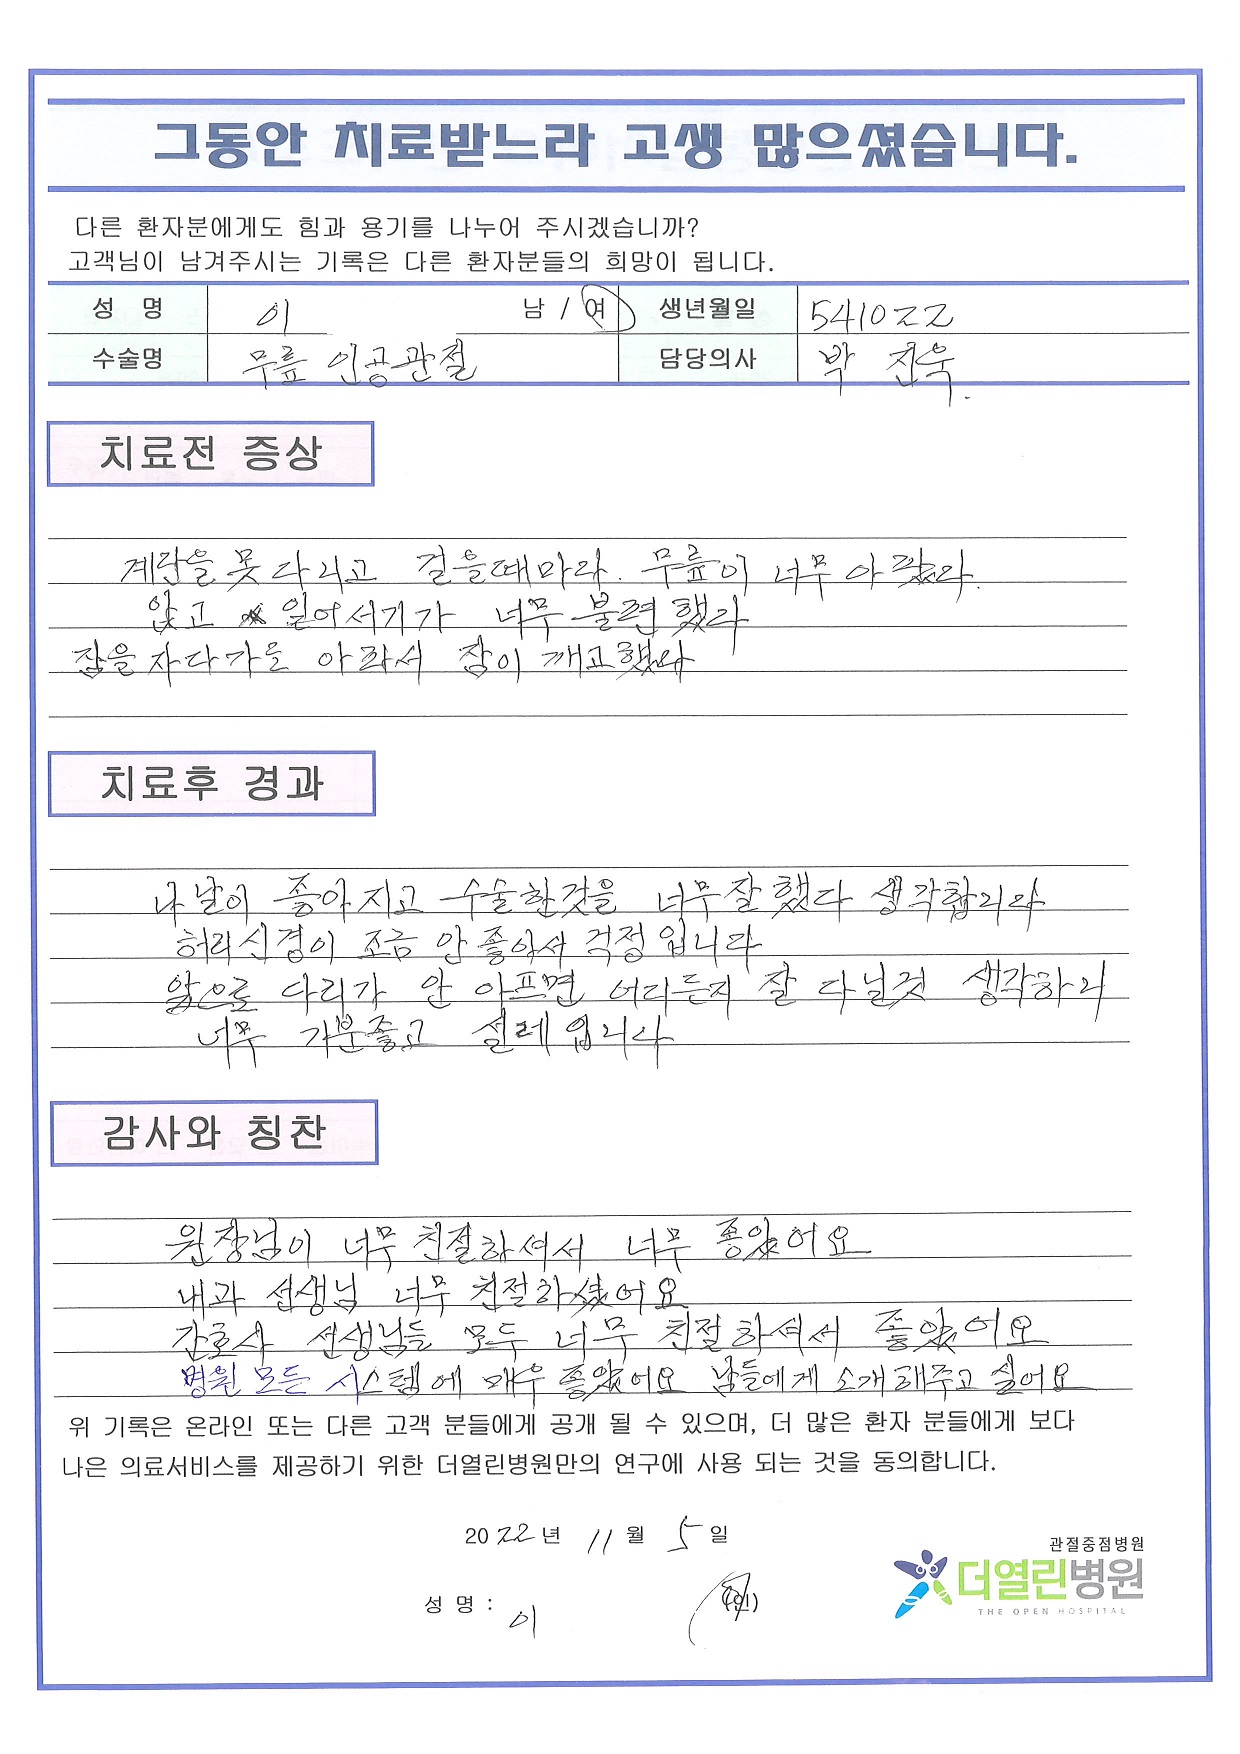 그동안 치료받느라 고생 많으셨습니다.
다른 환자분에게도 힘과 용기를 나누어 주시겠습니까?
고객님이 남겨주시는 기록은 다른 환자분들의 희망이 됩니다.
성 명 이 남 / 여 생년월일 541022
수술명 무릎 인공관절 담당의사 박 진욱.
치료전 증상
계단을 못 다니고 걸을때마라. 무릎이 너무 아팠다.
앉고 일어서기가 너무 불편했다
잠을 자다가를 아파서 잠이 깨고했다
치료후 경과
나날이 좋아지고 수술한것을 너무잘했다 생각합니다
허리신경이 조금 안 좋아서 걱정입니다
앞으로 다리가 안 아프면 어디든지 잘 다닐것 생각하니
너무 기분좋고 설레입니다
감사와 칭찬
원장님이 너무 친절하셔서 너무 좋았어요
내과 선생님 너무 친절하셨어요
간호사 선생님들 모두 너무 친절하셔서 좋았어요
병원 모든 시스템에 매우 좋았어요 남들에게 소개해주고 싶어요
위 기록은 온라인 또는 다른 고객 분들에게 공개 될 수 있으며, 더 많은 환자 분들에게 보다
나은 의료서비스를 제공하기 위한 더열린병원만의 연구에 사용 되는 것을 동의합니다.
2022년 11월 5일
관절중점병원
더열린병원
THE OPEN HOSPITAL
성 명 : 이 (인)